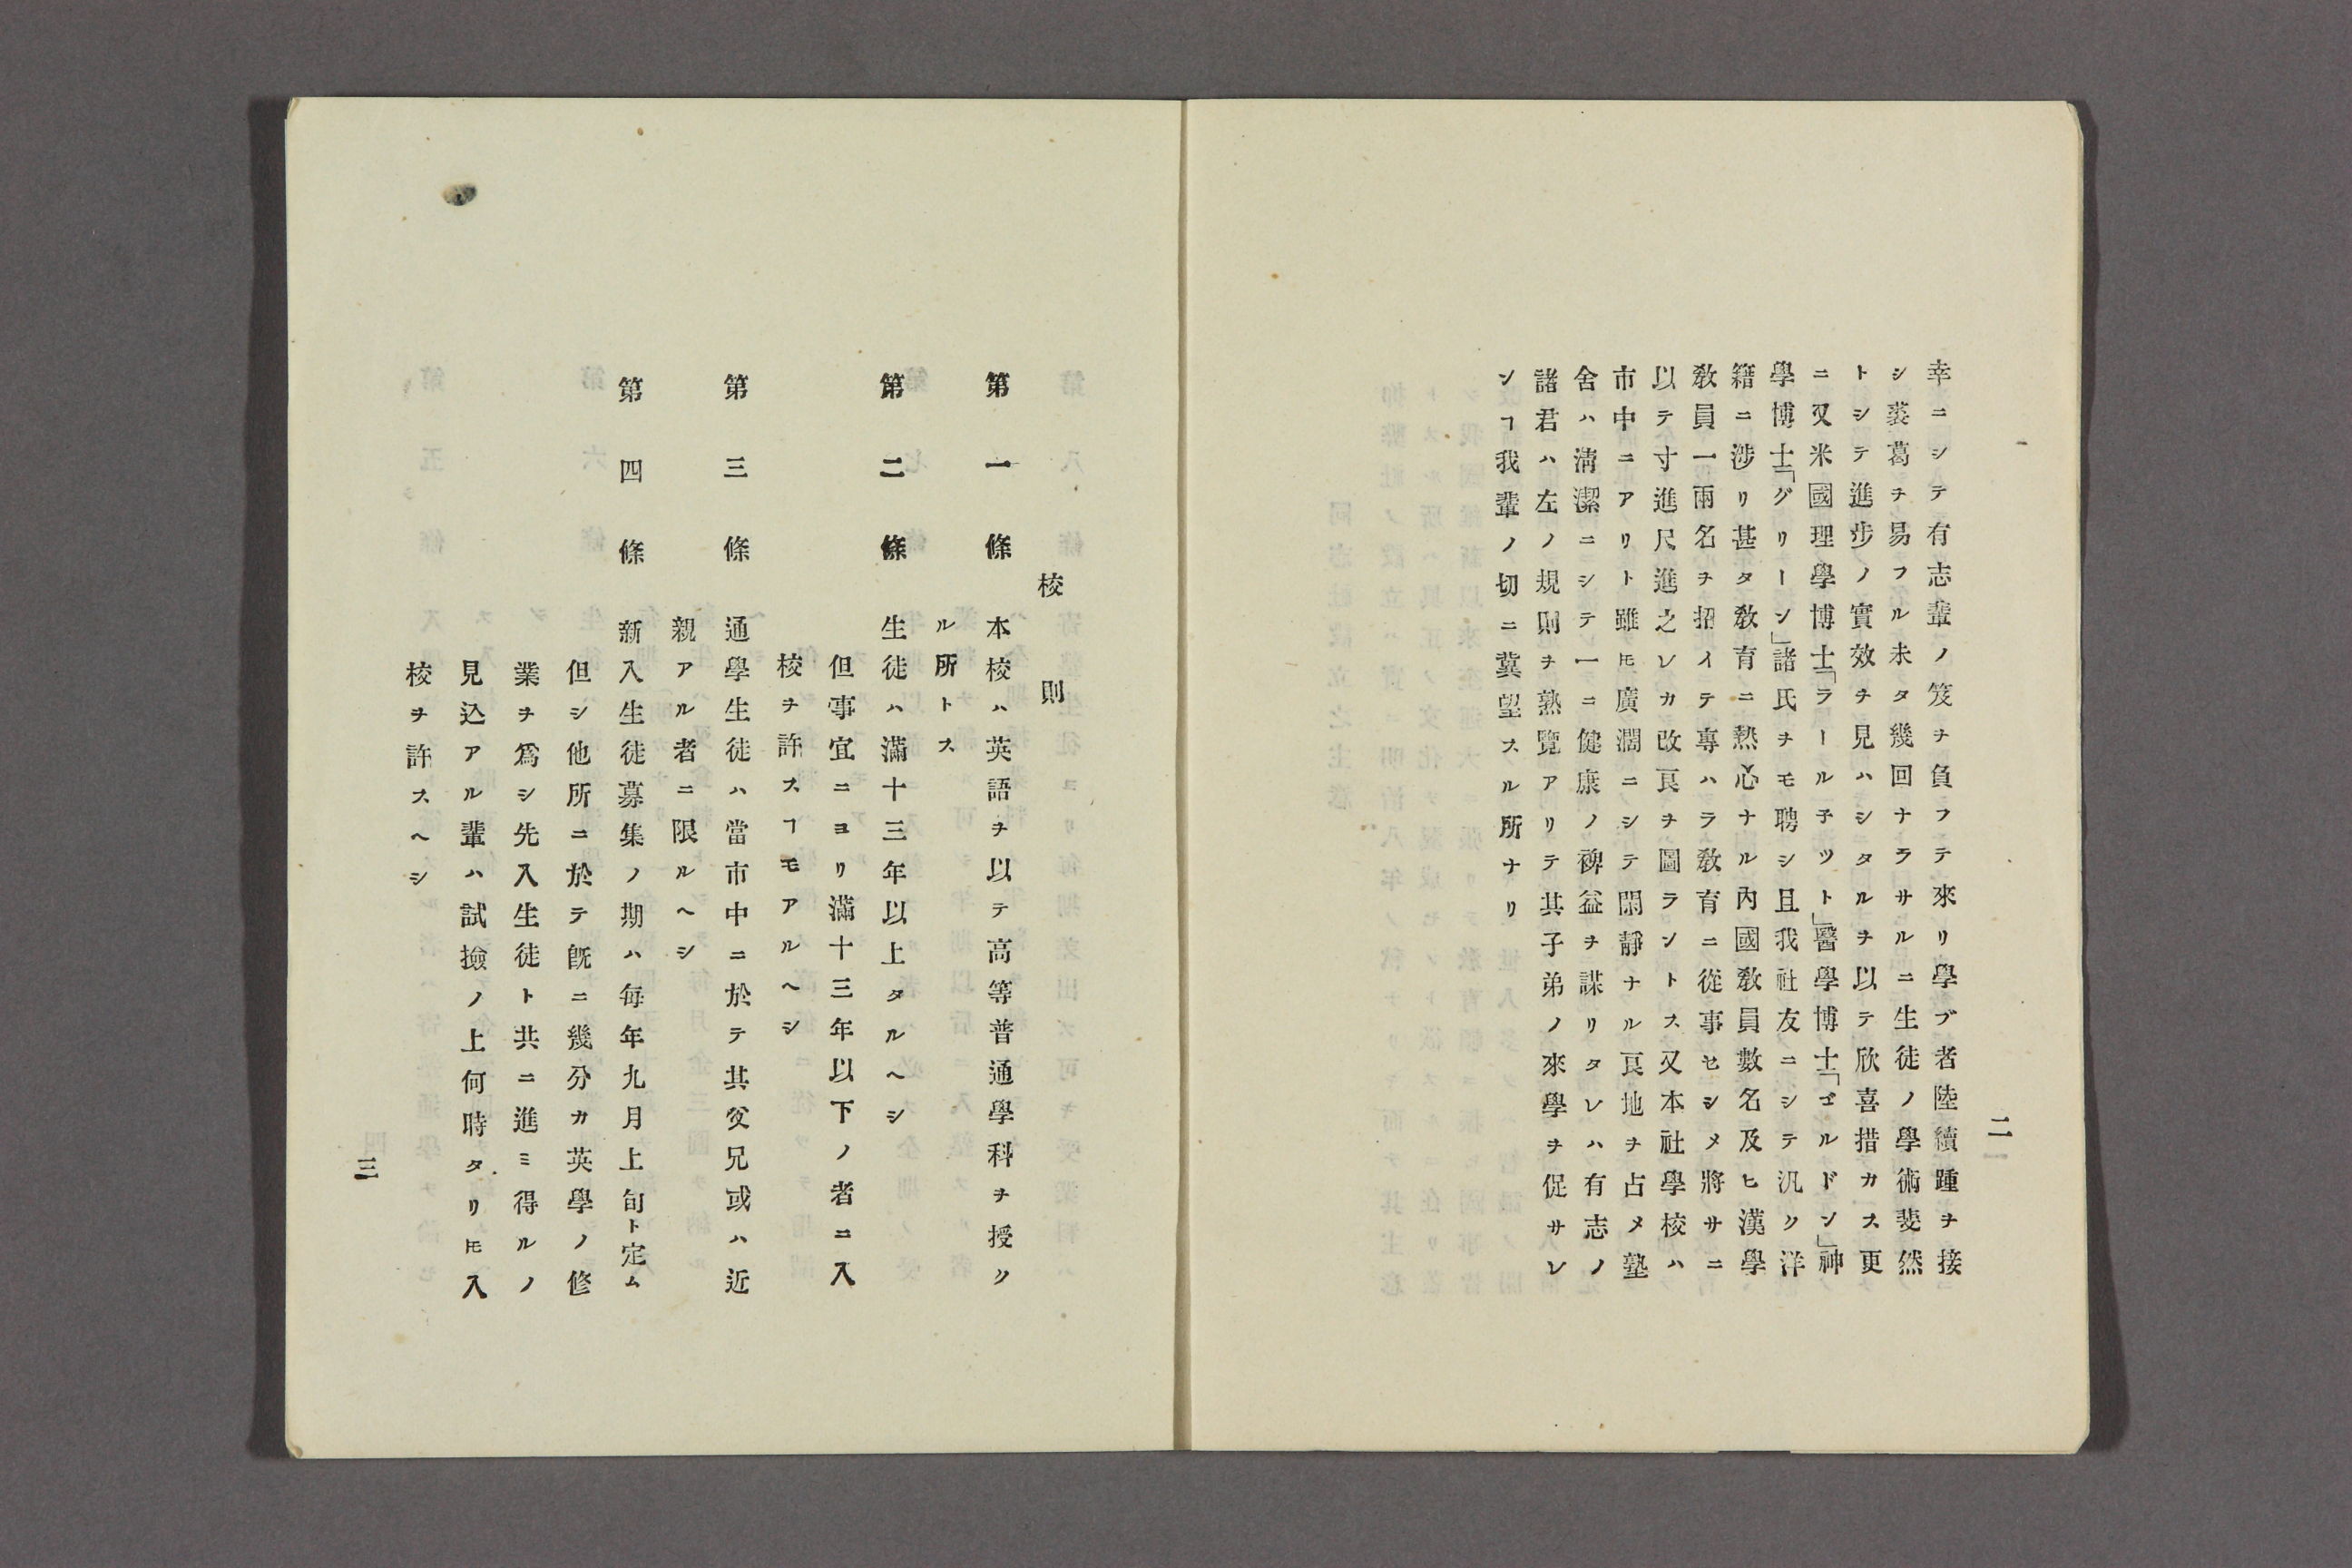 二
幸ニシテ有志輩ノ笈ヲ負フテ來リ學ブ者陸續踵ヲ接
シ裘葛ヲ易フル未タ幾回ナラサルニ生徒ノ學術斐然
トシテ進步ノ實效ヲ見ハシタルヲ以テ欣喜措カス更
ニ又米國理學博士「ラール子ツト」醫學博士「ゴルドン」神
學博士「グリーン」諸氏ヲモ聘シ且我社友ニシテ汎ク洋
籍ニ涉リ甚タ敎育ニ熱心ナル內國敎員數名及ヒ漢學
敎員一兩名ヲ招イテ專ハラ敎育ニ從事セシメ將サニ
以テ寸進尺進之レカ改良ヲ圖ラントス又本社學校ハ
市中ニアリト雖𪜈廣濶ニシテ閑靜ナル良地ヲ占メ塾
舍ハ淸潔ニシテ一ニ健康ノ裨益ヲ謀リタレハ有志ノ
諸君ハ左ノ規則ヲ熟覽アリテ其子弟ノ來學ヲ促サレ
ンヿ我輩ノ切ニ冀望スル所ナリ
校則
第一條 本校ハ英語ヲ以テ高等普通學科ヲ授ク
ル所トス
第二條 生徒ハ滿十三年以上タルヘシ
但事宜ニヨリ滿十三年以下ノ者ニ入
校ヲ許スヿモアルヘシ
第三條 通學生徒ハ當市中ニ於テ其父兄或ハ近
親アル者ニ限ルヘシ
第四條 新入生徒募集ノ期ハ每年九月上旬ト定ム
但シ他所ニ於テ旣ニ幾分カ英學ノ修
業ヲ爲シ先入生徒ト共ニ進ミ得ルノ
見込アル輩ハ試撿ノ上何時タリ𪜈入
校ヲ許スヘシ
三